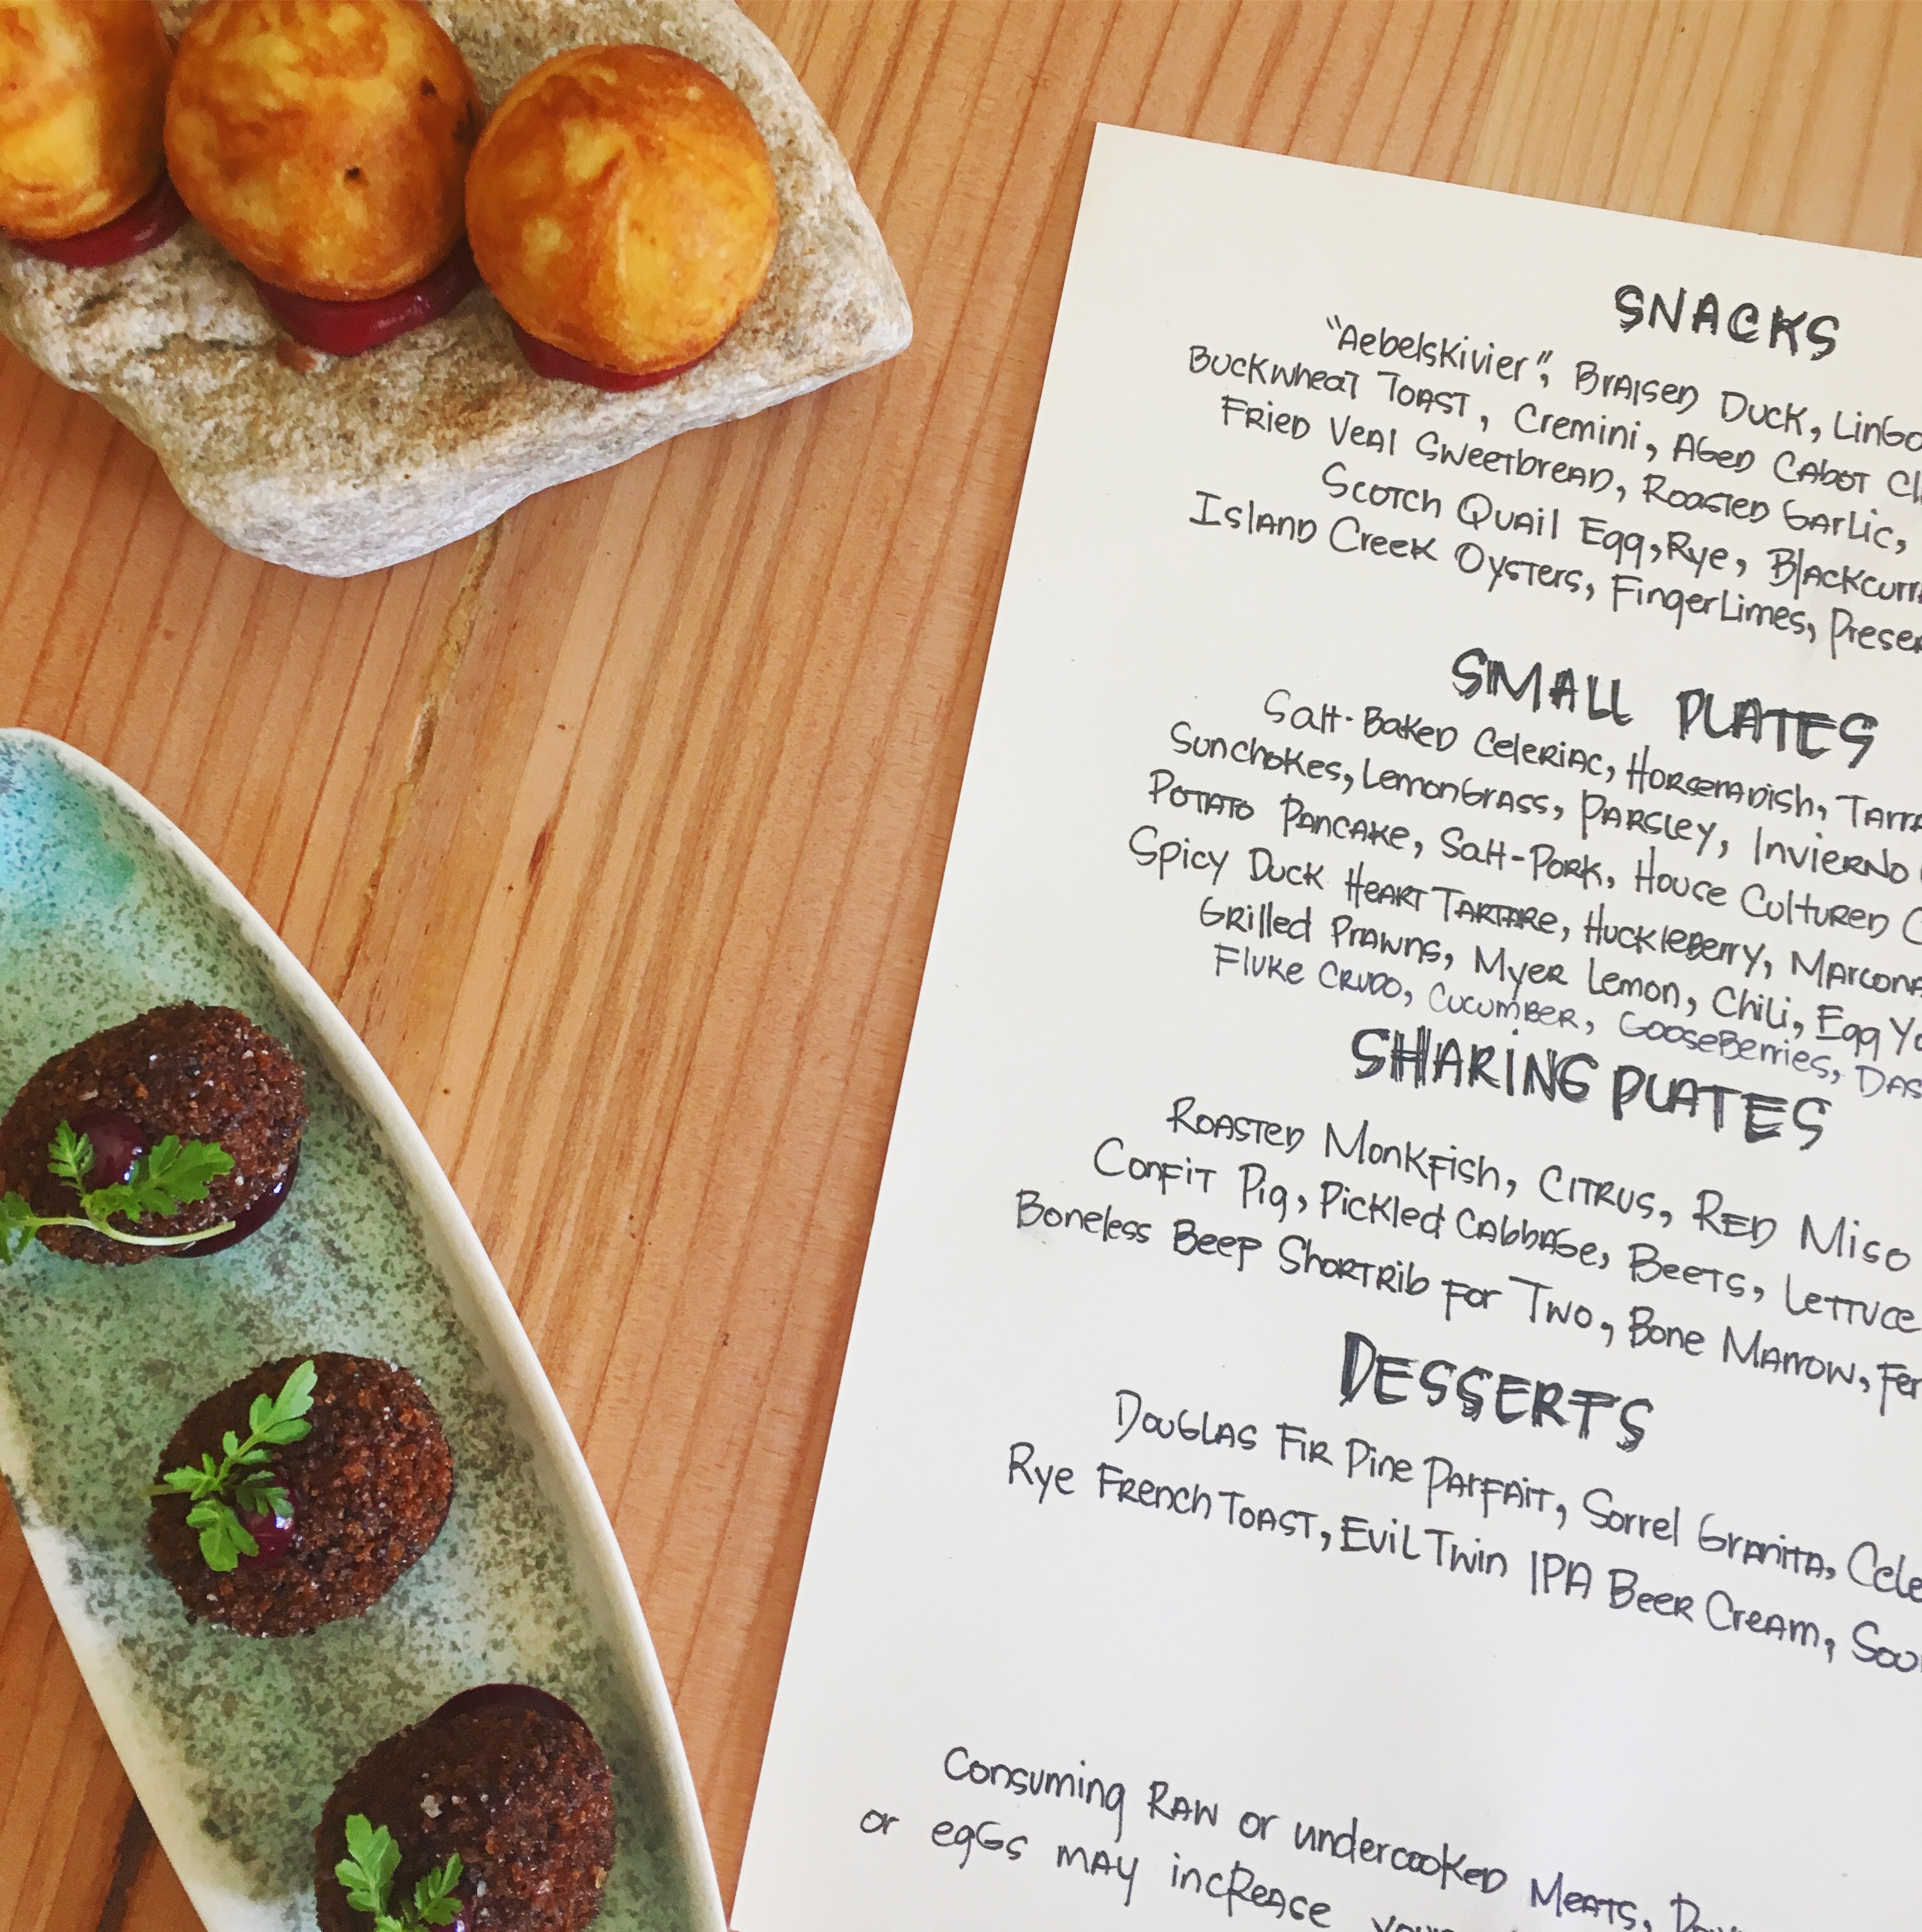 SNACKS
"Aebelskivier", Braised Duck, Lingo
Buckwheat Toast, Cremini, Aged Cabot Cl
Fried Veal Sweetbread, Roasted Garlic,
Scotch Quail Egg, Rye, Blackcurr
Island Creek Oysters, Finger Limes, Preser
SMALL PLATES
Salt-Baked Celeriac, Horseradish, Tarra
Sunchokes, Lemongrass, Parsley, Invierno
Potato Pancake, Salt-Pork, House Cultured C
Spicy Duck Heart Tartare, Huckleberry, Marcona
Grilled Prawns, Myer Lemon, Chili, Egg Yo
Fluke Crudo, Cucumber, Gooseberries, Das
SHARING PLATES
Roasted Monkfish, Citrus, Red Miso
Confit Pig, Pickled Cabbage, Beets, Lettuce
Boneless Beef Shortrib for Two, Bone Marrow, Fer
DESSERTS
Douglas Fir Pine Parfait, Sorrel Granita, Cele
Rye French Toast, Evil Twin IPA Beer Cream, Sou
Consuming Raw or undercooked Meats,
or eggs may increase your